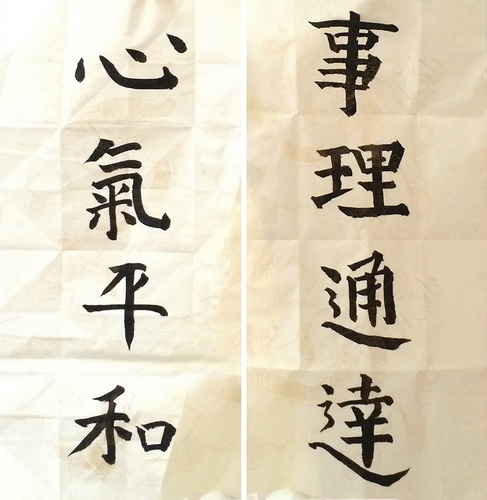 事理通達
心氣平和